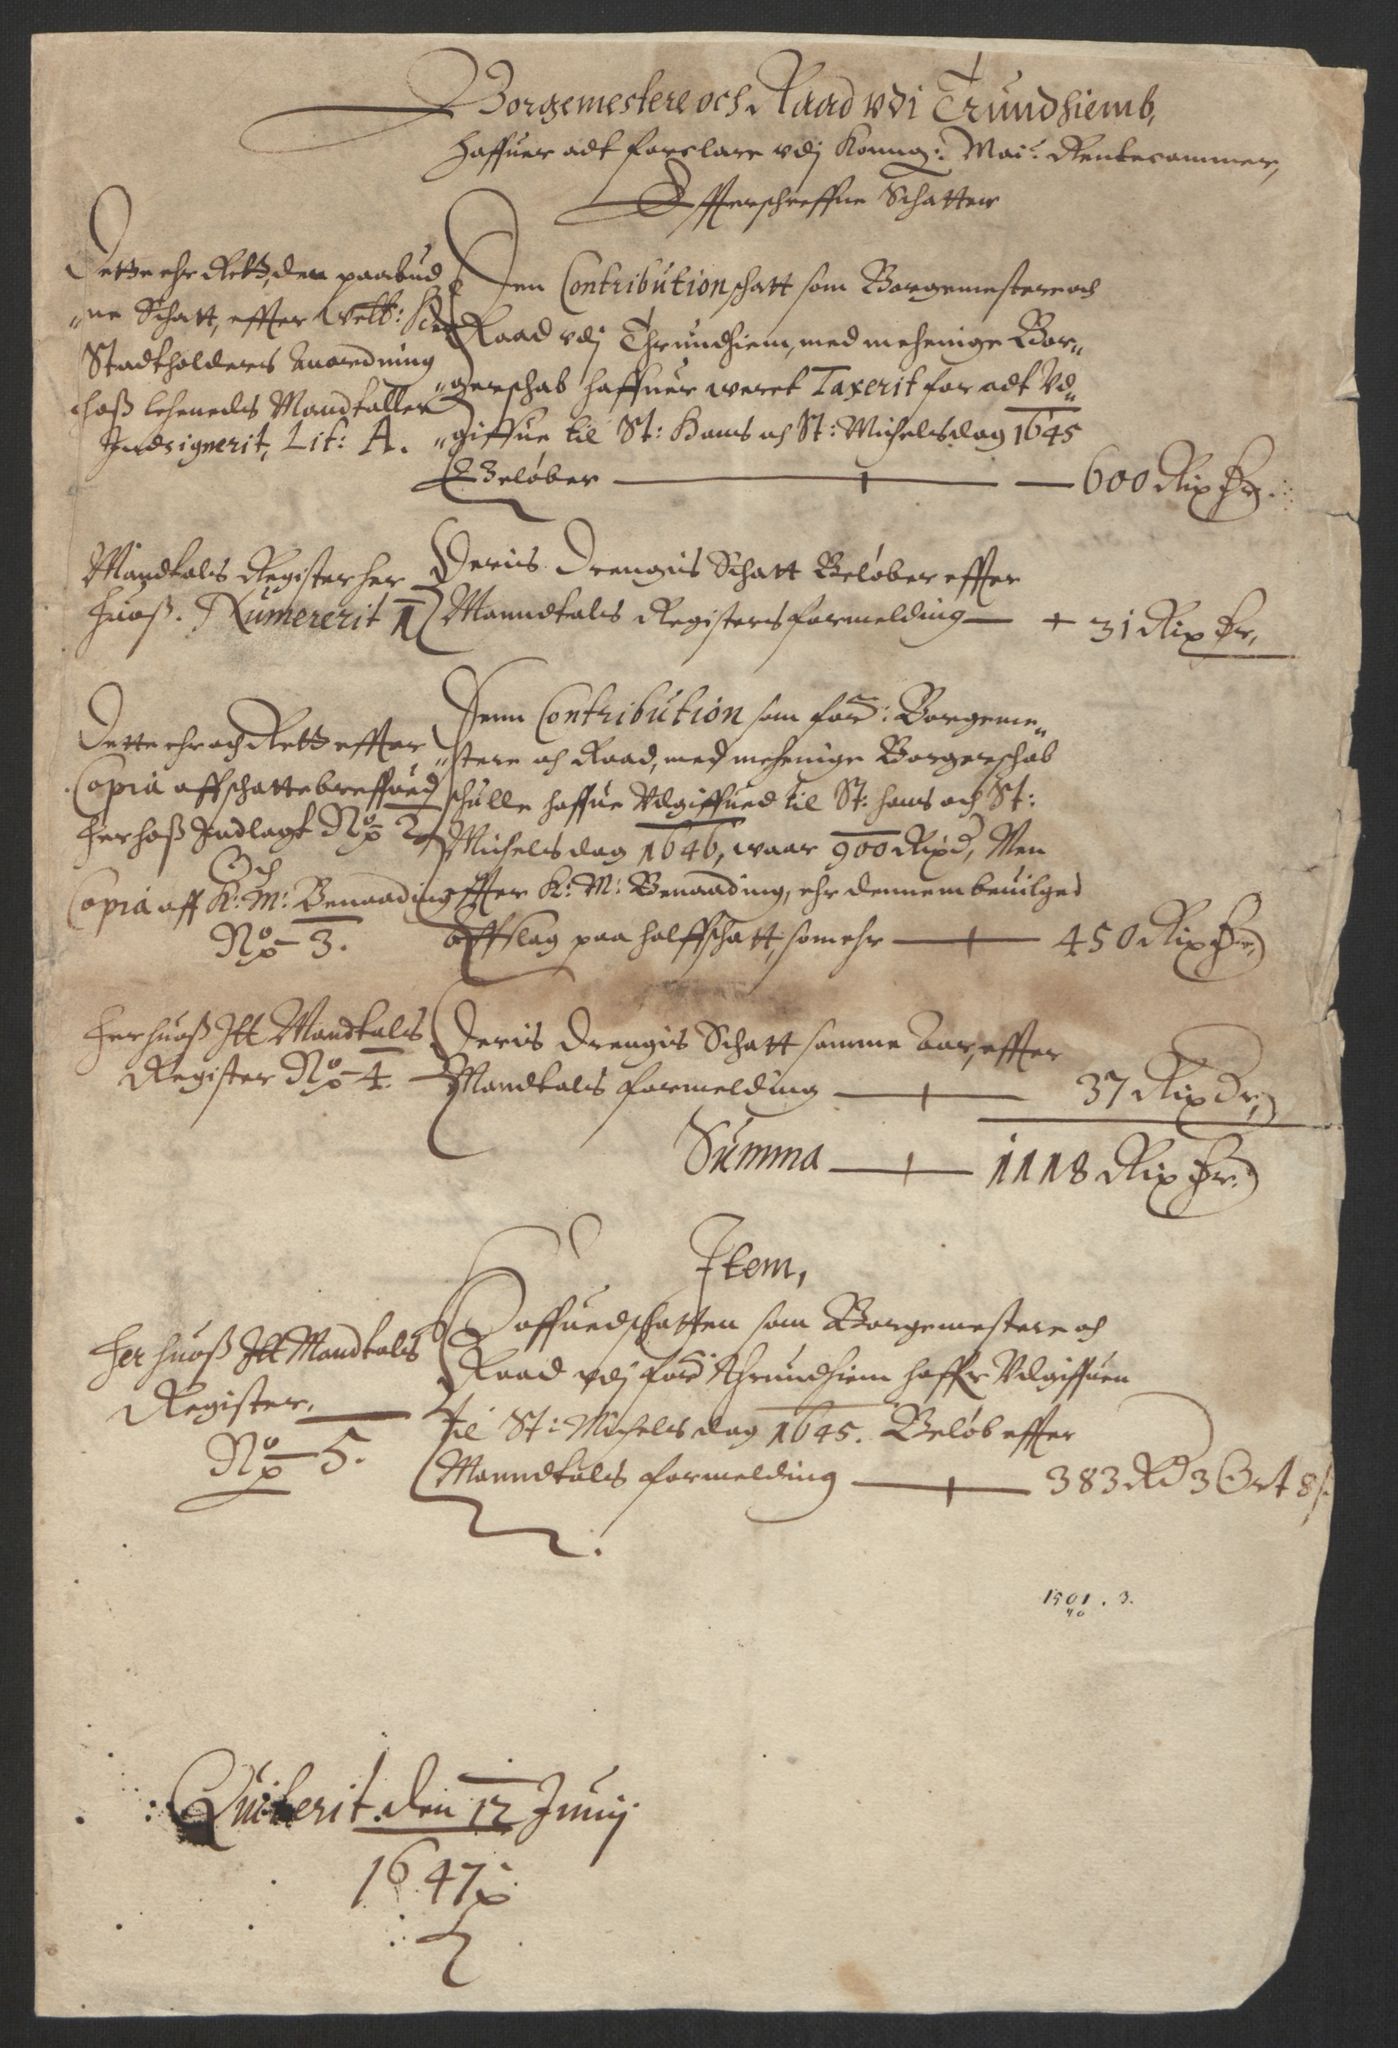 Borgemestere och Raad vdi Trundhiemb,
haffuer adt forclare vdj Konng: Mai: Rentecammer,
Effterschreffne Schatter
Dette ehr Rett, den paabud
"ne Schatt, effter Welb: Her
Stadtholders Anordning
hoß lehnedts Mandtaller
Indsignerit, Lit: A.
Den Contribution schatt som Borgemestere och
Raad vdj Thrundhiem, med mehenige Bor"
"gerschab haffuer weret Taxerit for adt Vd"
"giffue til St: Hans och St: Michelsdag 1645
Beløber 600 Rix dr.
Mandtals Register her
huoß. Numererit 1
Deris Drengis Schatt Beløber effter
Manndtals Registers formelding 31 Rix dr,
Dette ehr och Rett effter
Copia aff schattebreffued
herhoß Indlagt No 2
Och
Copia aff K: M: Benaading
No 3.
Denn Contribution som for: Borgeme"
"stere och Raad, med mehenige Borgerschab
schulle haffue Vdgiffued til St: hans och St:
Michelsdag 1646, waar 900 Rixd, Men
effter K: M: Benaading, ehr dennem beuilged
affslag paa halffschatt, som ehr 450 Rix dr,
Her huoß Itt Mandtals
Register No 4.
Deris Drengis Schatt samme Aar, effter
Mandtals formelding 37 Rix Dr,
Summa 1118 Rix dr.
Item,
Her huoß Itt Mandtals
Register,
No 5.
Hoffuedschatten som Borgemestere och
Raad vdj ford Thrundhiem haffr Vdgiffuen
til St: Michelsdag 1645. Beløb effter
Manndtals formelding 383 Rd 3 Ort 8 s.
1501 . 3.
40
Quiterit den 12 Junij
1647